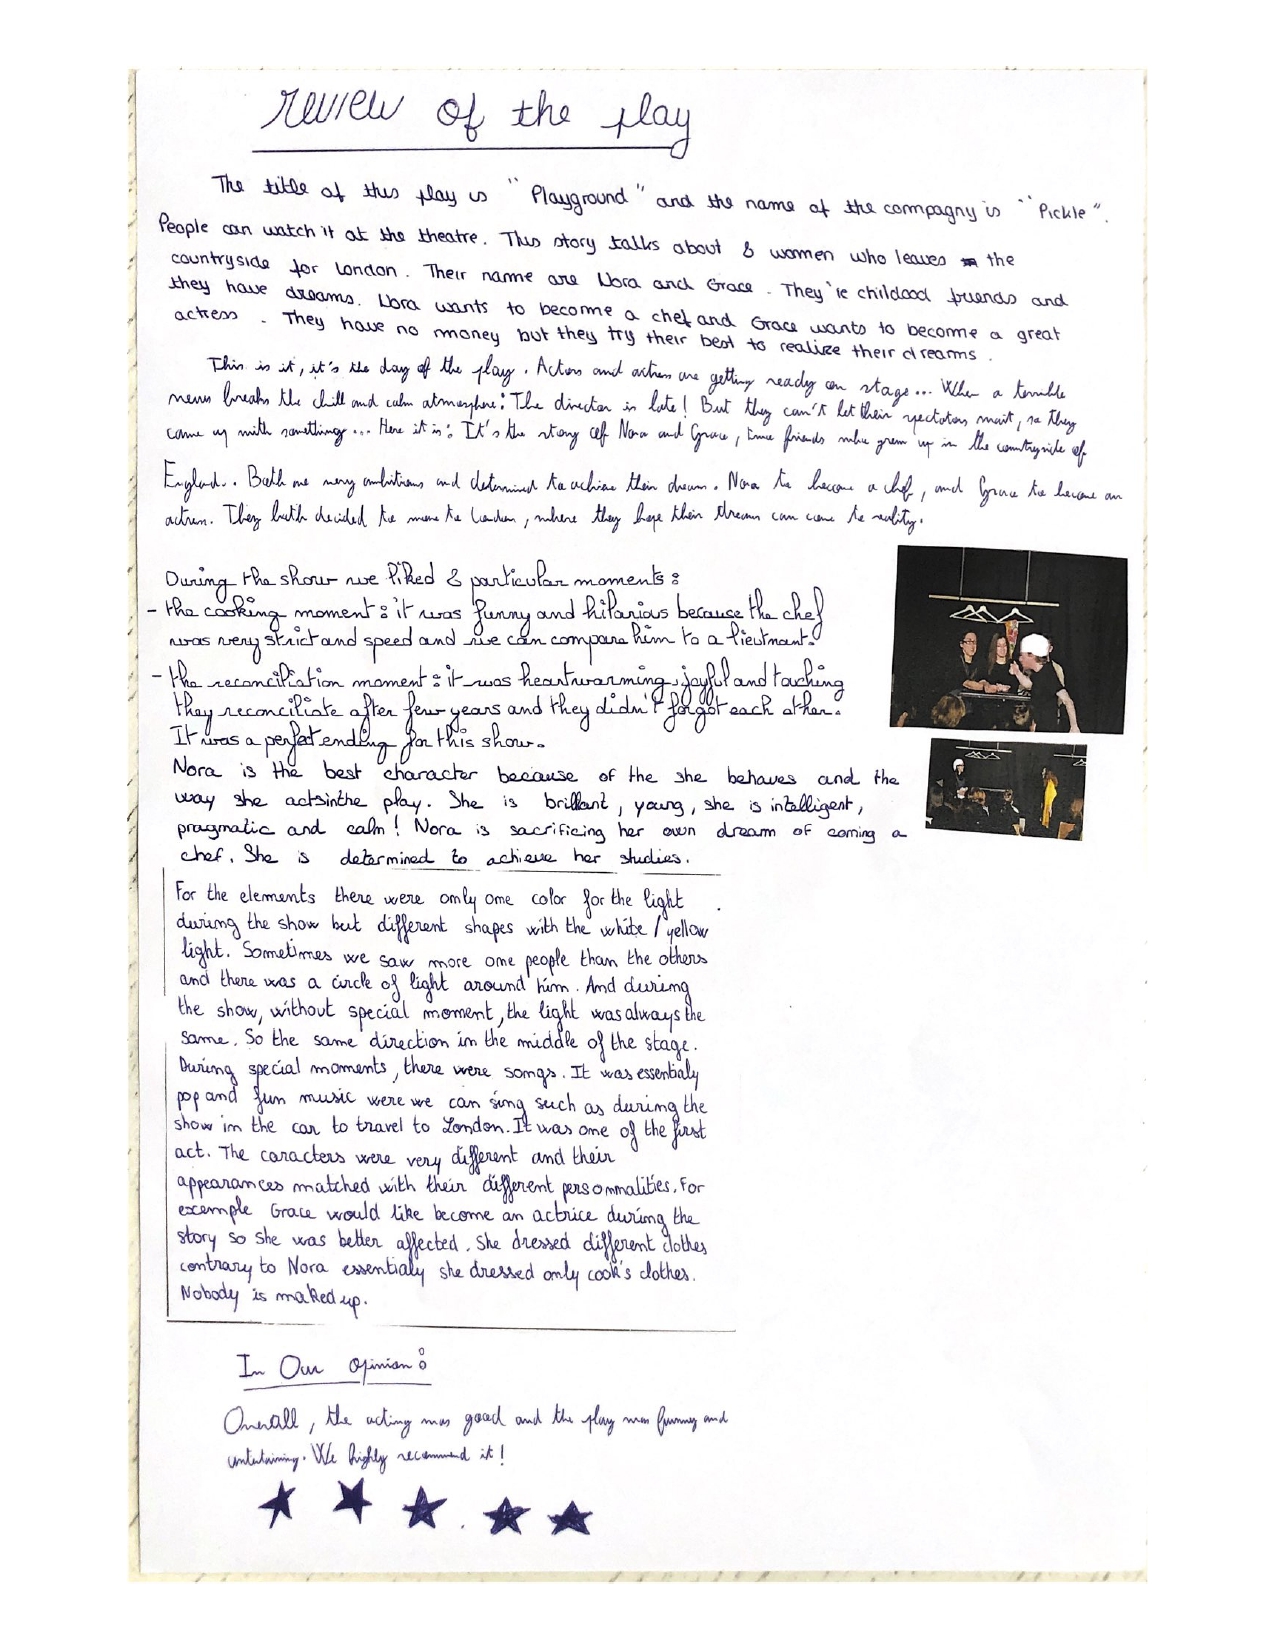 review of the play
The title of this play is "Playground" and the name of the compagny is "Pickle".
People can watch it at the theatre. This story talks about 2 women who leaves the
countryside for London. Their name are Nora and Grace. They're childood friends and
they have dreams. Nora wants to become a chef and Grace wants to become a great
actress. They have no money but they try their best to realize their dreams.
This is it, it's the day of the play. Actors and actress are getting ready on stage... When a terrible
news breaks the chill and calm atmosphere: The director is late! But they can't let their spectators wait, so they
came up with something... Here it is: It's the story of Nora and Grace, two friends who grew up in the countryside of
England.. Both are very ambitious and determined to achieve their dream. Nora to become a chef, and Grace to become an
actress. They both decided to move to London, where they hope their dreams can come to reality.
During the show we liked 2 particular moments:
- the cooking moment: it was funny and hilarious because the chef
was very strict and speed and we can compare him to a lieutnant.
- the reconciliation moment: it was heartwarming, joyful and touching
they reconciliate after few years and they didn't forgot each other.
It was a perfect ending for this show.
Nora is the best character because of the she behaves and the
way she acts in the play. She is brillant, young, she is intelligent,
pragmatic and calm! Nora is sacrificing her own dream of coming a
chef. She is determined to achieve her studies.
For the elements there were only one color for the light
during the show but different shapes with the white / yellow
light. Sometimes we saw more one people than the others
and there was a circle of light around him. And during
the show, without special moment, the light was always the
same. So the same direction in the middle of the stage.
During special moments, there were songs. It was essentialy
pop and fun music were we can sing such as during the
show in the car to travel to London. It was one of the first
act. The caracters were very different and their
appearances matched with their different personnalities. For
exemple Grace would like become an actrice during the
story so she was better affected. She dressed different clothes
contrary to Nora essentialy she dressed only cook's clothes.
Nobody is maked up.
In Our opinion:
Overall, the acting was good and the play was funny and
entertaining. We highly recommend it!